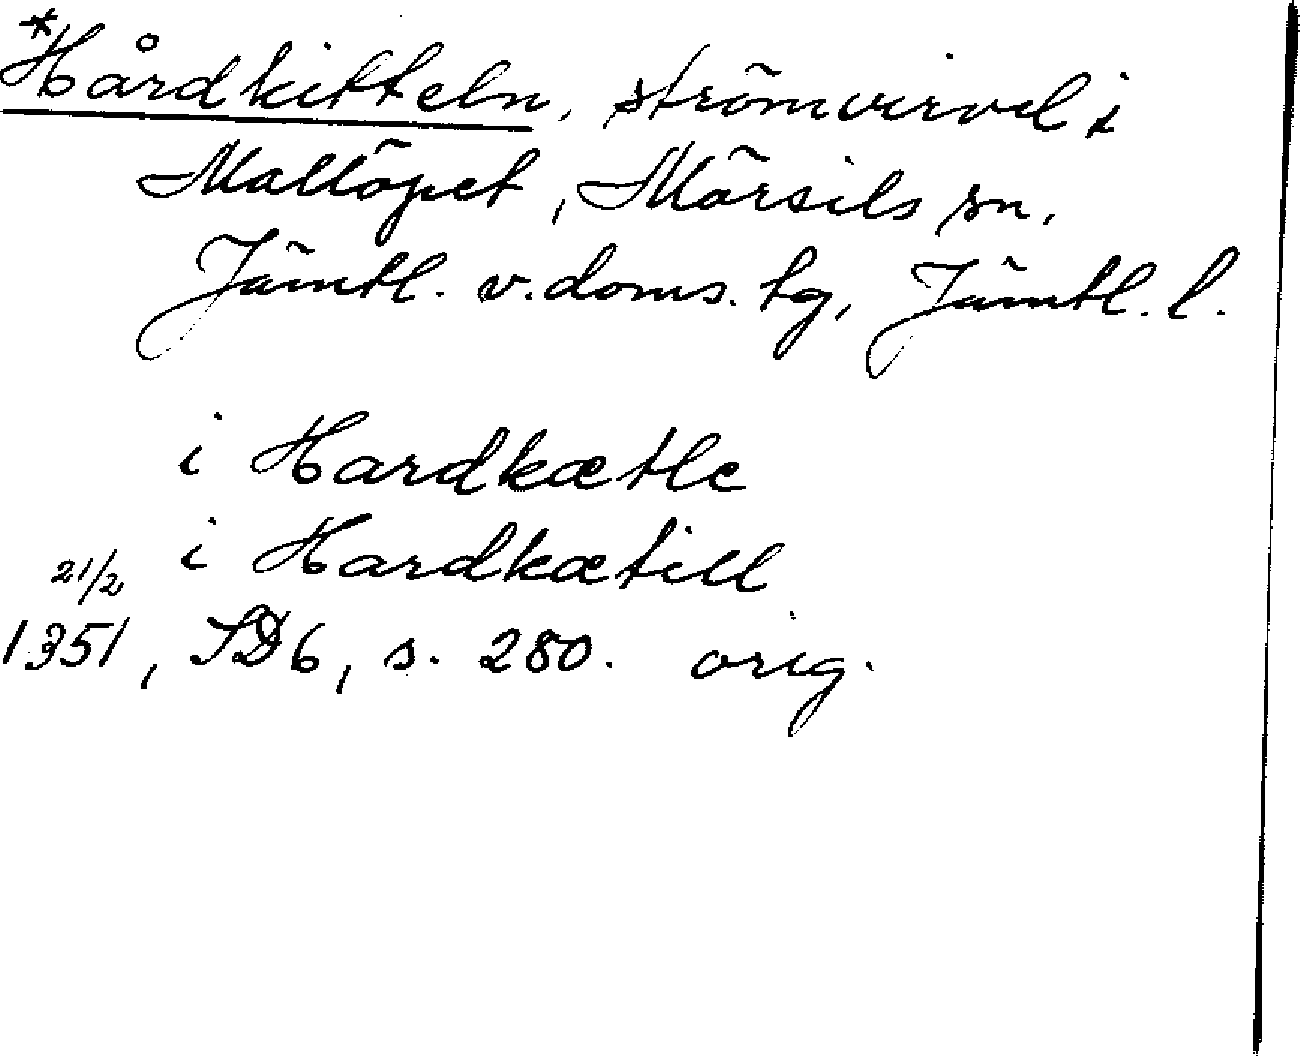 *Hårdkitteln, strömvirvel i
Mallöpet, Mörsils sn,
Jämtl. v. doms. tg, Jämtl. l.
i Hardkætle
i Hardkætill
21/2
1351, SD6, s. 280. orig.